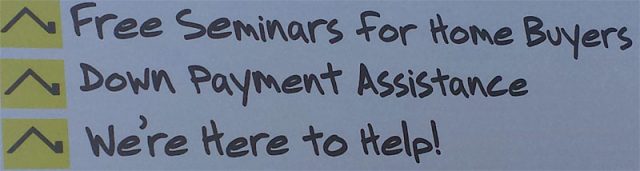 Free Seminars for Home Buyers
Down Payment Assistance
We're Here to Help!